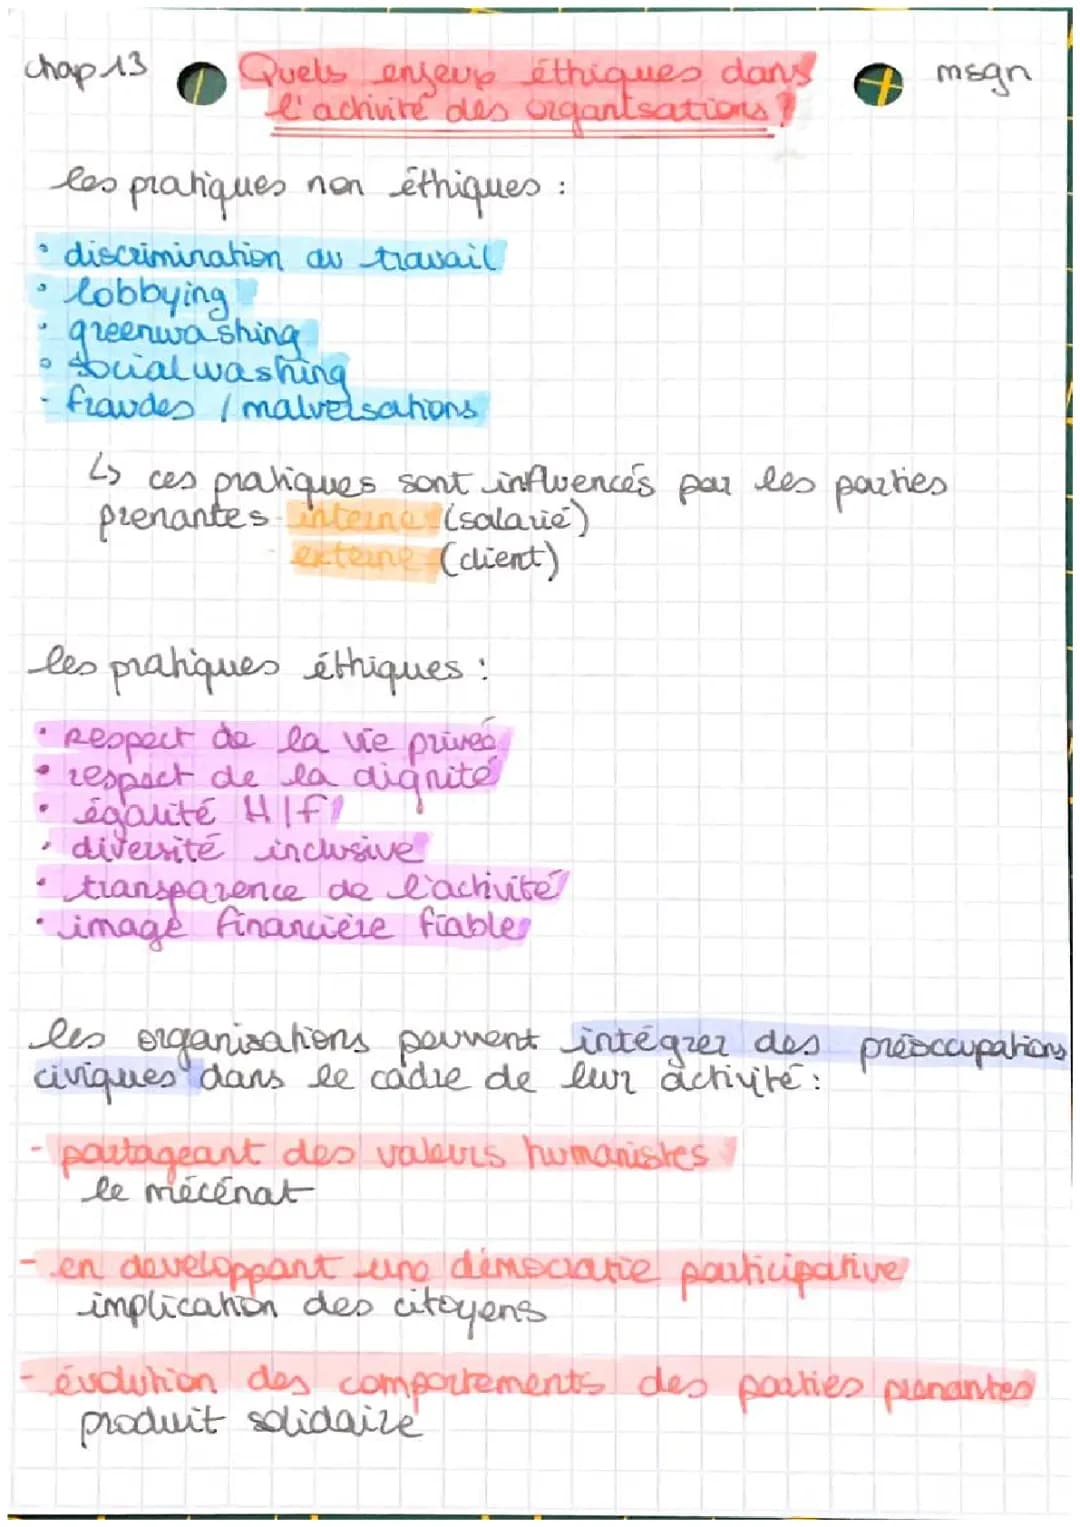 chap 13
Quels enjeux éthiques dans
l'activité des organisations ?
msgn
les pratiques non éthiques :
• discrimination au travail
• lobbying
• greenwashing
• socialwashing
- fraudes / malversations
↳ ces pratiques sont influencés par les parties
prenantes interne (salarié)
externe (client)
les pratiques éthiques :
• respect de la vie privée
• respect de la dignité
• égalité H/f
• diversité inclusive
• transparence de l'activité
• image financière fiable
les organisations peuvent intégrer des préoccupations
civiques dans le cadre de leur activité :
- partageant des valeurs humanistes
le mécénat
- en developpant une démocratie participative
implication des citoyens
- évolution des comportements des parties prenantes
produit solidaire